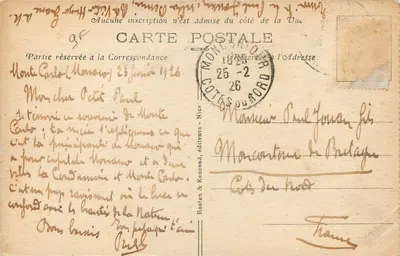 Aucune inscription n'est admise du côté de la Vue
CARTE POSTALE
Partie réservée à la Correspondance
l'Adresse
MONCONTOUR
18 25
25-2
26
COTES DU NORD
Monte Carlo (Monaco) 23 février 1926
Mon cher Petit Paul
Je t'envoi ce souvenir de Monte
Carlo, ta mère t'expliquera ce que
c'est la principauté de Monaco qui
a pour capitale Monaco et a deux
villes la Condamine et Monte Carlo.
c'est un pays ravissant où le luxe se
confond avec la beauté de la Nature.
Bons baisers
Ton qui t'aime
Rostan & Munier, éditeurs - Nice
Monsieur Paul Jouan fils
Moncontour de Bretagne
Côtes du Nord
France